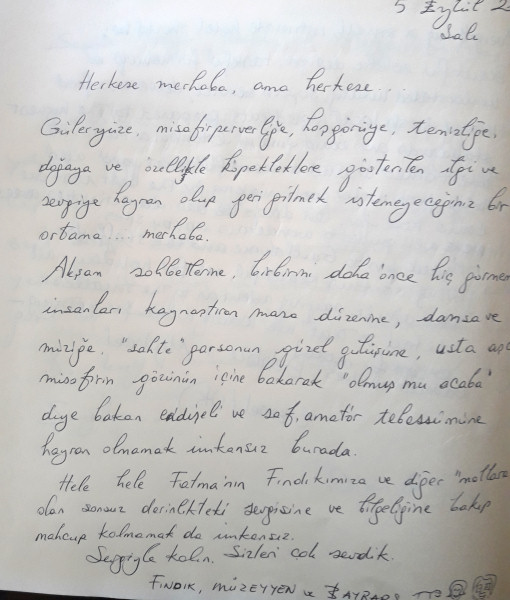 5 Eylül 2
Salı
Herkese merhaba, ama herkese...
Güleryüze, misafirperverliğe, hoşgörüye, temizliğe,
doğaya ve özellikle köpekleklere gösterilen ilgi ve
sevgiye hayran olup geri gitmek istemeyeceğiniz bir
ortama.... merhaba.
Akşam sohbetlerine, birbirini daha önce hiç görmem
insanları kaynaştıran masa düzenine, dansa ve
müziğe. "sahte" garsonun güzel gülüşüne, usta aşç
misafirin gözünün içine bakarak "olmuş mu acaba"
diye bakan endişeli ve saf, amatör tebessümüne
hayran olmamak imkansız burada.
Hele hele Fatma'nın Fındıkımıza ve diğer
olan sonsuz derinlikteki sevgisine ve bilgeliğine bakıp
mahcup kalmamak da imkansız.
Sevgiyle kalın. Sizleri çok sevdik.
FINDIK, MÜZEYYEN ve